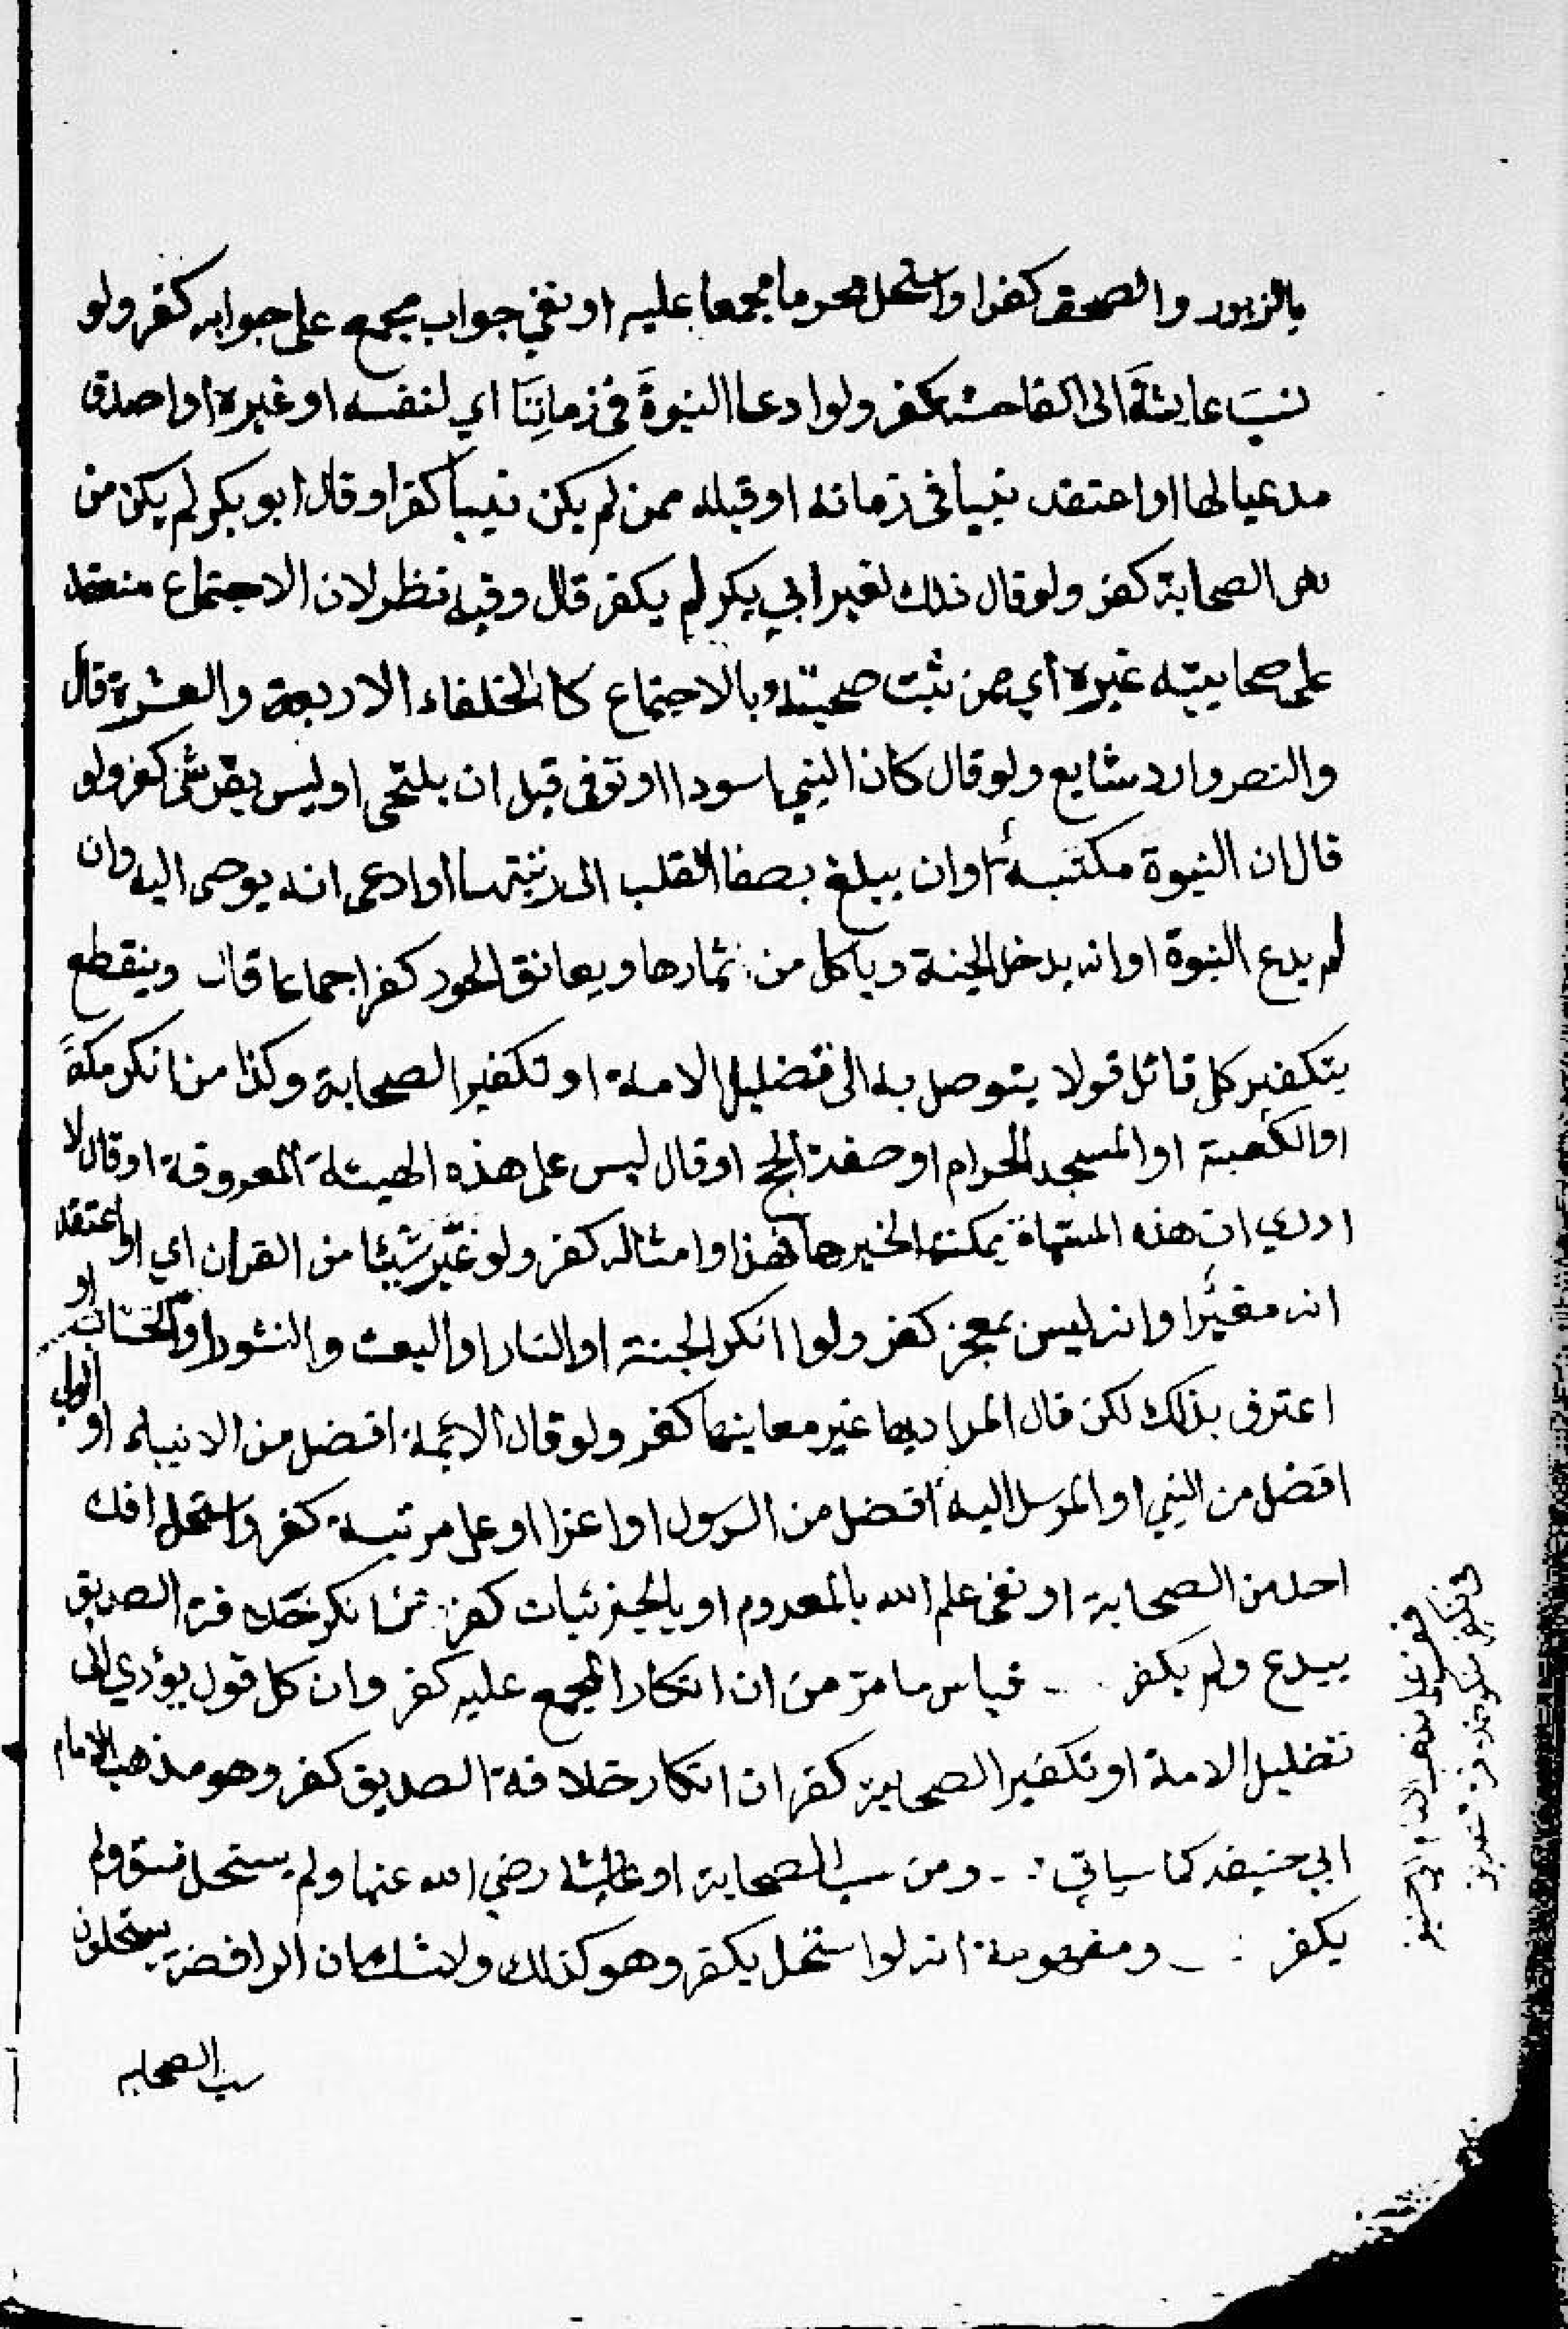 بالزبور والصحف كفرا واستحل محرما مجمعا عليه او نفي جواب مجمع على جوابه كفر ولو
نسبَ عايشةَ الى الفاحشه كفر ولو ادعا النبوةَ فى زمانِنَا اي لنفسه او غيره او اصدق
مدعيا لها او اعتقد نبيا فى زمانه او قبله ممن لم يكن نبياً كفرا وقال ابو بكر لم يكن من
الصحابة كفر ولو قال ذلك لغير ابي بكر لم يكفر قال وفيه نظر لان الاجتماع منعقد
على صحابيته غيره أي ممن ثبت صحبته وبالاجتماع كا الخلفاء الاربعة والعشرة قال
والنص وارد شايع ولو قال كان النبي اسودا او توفى قبل ان يلتحى او ليس بقرشي كفر ولو
قال ان النبوة مكتسبةٌ او ان يبلغ بصفا القلب الى رتبتها او ادعى انه يوحى اليه وان
لم يدع النبوة او انه يدخل الجنة وياكل من ثمارها ويعانق الحور كفر اجماعا قال وينقطع
بتكفير كل قائل قولا يتوصل به الى تضليل الامة او تكفير الصحابة وكذا من انكر مكةً
او الكعبة او المسجد الحرام او صفة الحج او قال ليس على هذه الهيئة المعروفة او قال لا
ادري ان هذه المسماة بمكة او لخيرها فهذا وامثاله كفر ولو غيّر شيئا من القران اي او اعتقد
انه مغيّرا وانه ليس بمعجز كفر ولوا انكر الجنة او النار او البعث والنشور او الحساب او
اعترف بذلك لكن قال المراد بها غير معاينها كفر ولو قال الائمة افضل من الانبياء او الولي
افضل من النبي او المرسل اليه افضل من الرسول او اعزا او على مرتبة كفر واستحل افك
احد من الصحابة او نفى علم الله بالمعدوم او بالجزئيات كفر من انكر خلافة الصديق
يبدع ولم يكفر قياس ما مرّ من ان انكار المجمع عليه كفر وان كل قول يؤدي الى
تضليل الامة او تكفير الصحابة كفر ان انكار خلافة الصديق كفر وهو مذهب الامام
ابي حنيفه كما سياتي ومن سب الصحابة او عايشة رضي الله عنها ولم يستحل فسق ولم
يكفر ومفهومة انه لوا ستحل يكفر وهو كذلك ولا شك ان الرافضة يستحلون
سب الصحابه